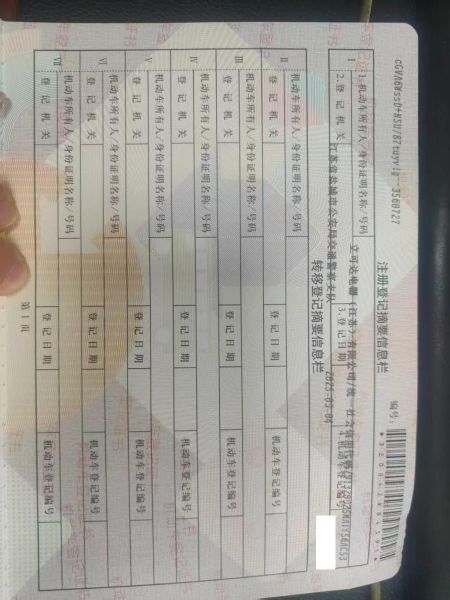 3568727
注册登记摘要信息栏
编号:
I 1.机动车所有人/身份证明名称/号码 立可达电器(江苏)有限公司/统一社会信用代码/
2.登记机关 江苏省盐城市公安局交通警察支队 3.登记日期 2025-09-04 4.机动车登记编号
转移登记摘要信息栏
II 机动车所有人/身份证明名称/号码
登记机关 登记日期 机动车登记编号
III 机动车所有人/身份证明名称/号码
登记机关 登记日期 机动车登记编号
IV 机动车所有人/身份证明名称/号码
登记机关 登记日期 机动车登记编号
V 机动车所有人/身份证明名称/号码
登记机关 登记日期 机动车登记编号
VI 机动车所有人/身份证明名称/号码
登记机关 登记日期 机动车登记编号
VII 机动车所有人/身份证明名称/号码
登记机关 登记日期 机动车登记编号
第1页